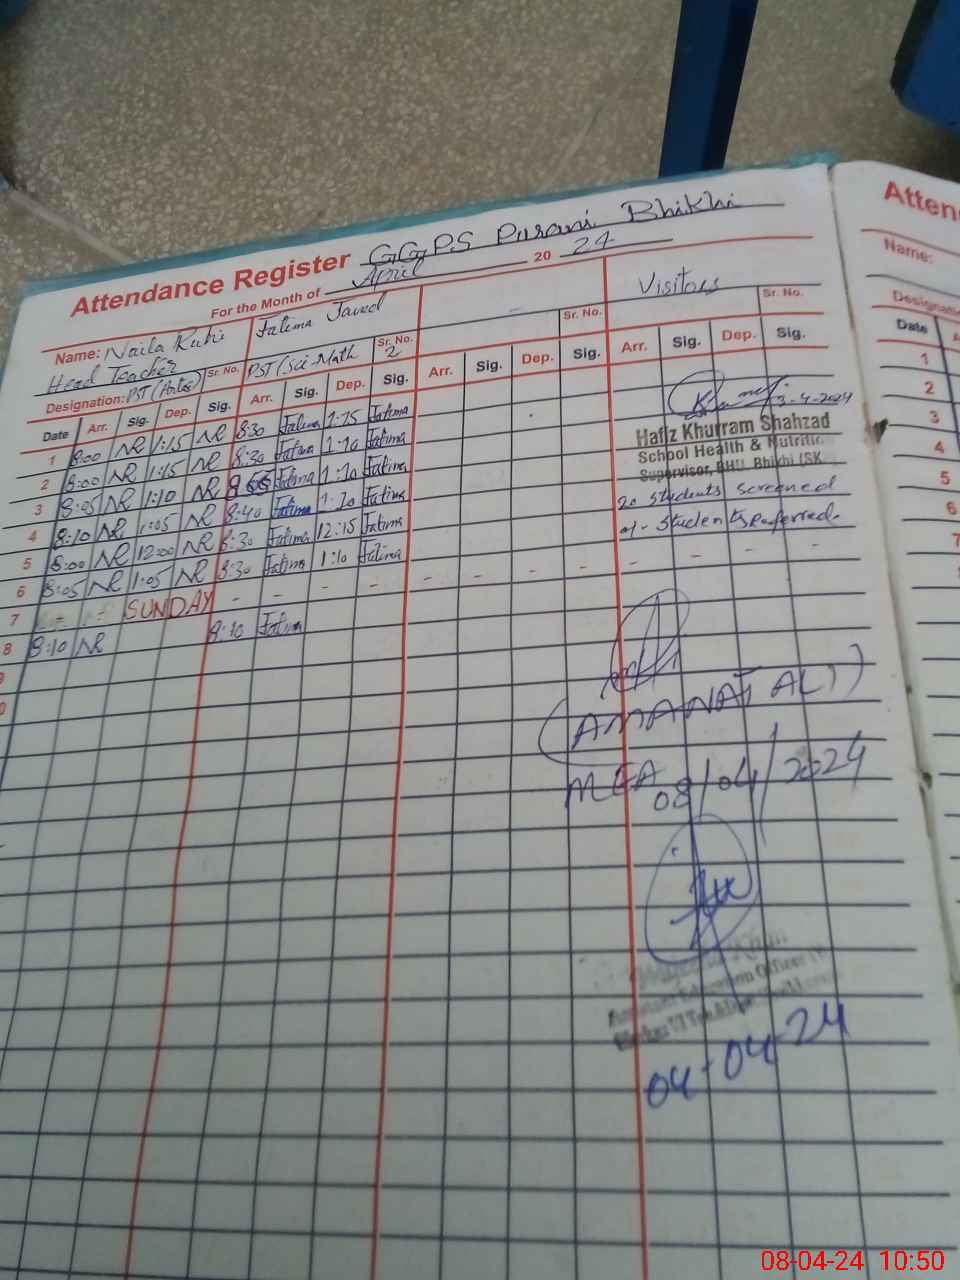 Attendance Register GGPS Purani Bhikhi
For the Month of April 20 24
Name: Naila Fatima Javed Visitors
Head Teacher Sr. No. Sr. No. 2 Sr. No. Sr. No.
Designation: PST (Arts) PST (Sci-Math
Date Arr. Sig. Dep. Sig. Arr. Sig. Dep. Sig. Arr. Sig. Dep. Sig. Arr. Sig. Dep. Sig.
1 8:00 NR 1:15 NR 8:30 Fatima 1:15 Fatima
2 8:00 NR 1:15 NR 8:30 Fatima 1:10 Fatima
3 8:05 NR 1:10 NR Fatima Fatima
4 8:10 NR 1:05 NR 8:40 Fatima Fatima
5 8:00 NR 12:00 NR 8:30 Fatima 12:15 Fatima
6 8:05 NR 1:05 NR 8:30 Fatima 1:10 Fatima
7 SUNDAY - - - - - - - - - - -
8 8:10 NR 8:10 Fatima
3-4-2024
Hafiz Khurram Shahzad
School Health & Nutritio
Supervisor, BHU, Bhikhi (SK
20 students screened
01- Students Referred.
(AMANAT ALI)
MEA 08/04/2024
Assistant Education Officer
04-04-24
Atten
Name:
Designation
Date
1
2
3
4
5
6
7
08-04-24 10:50